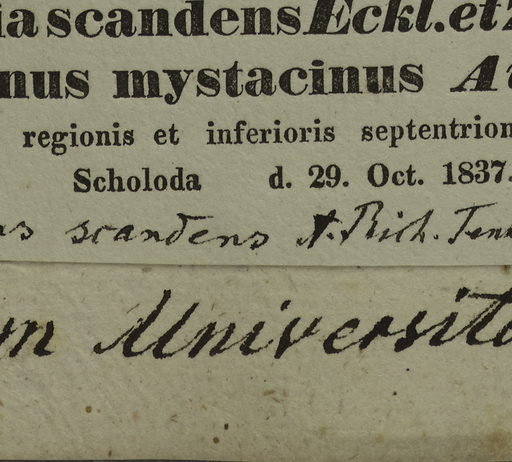 ia scandens Eckl. et Z
nus mystacinus A
regionis et inferioris septentrion
Scholoda d. 29. Oct. 1837.
ns scandens A. Rich. Tent
m Universita